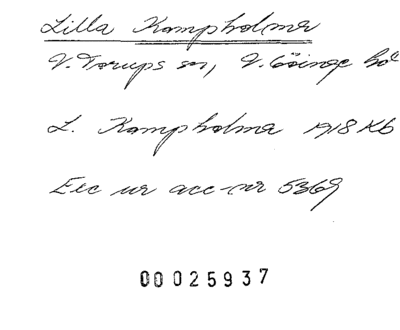 Lilla Kampholma
V. Torups sn, V. Göinge hd
L. Kampholma 1918 Kb
Exc ur acc-nr 5369
00025937